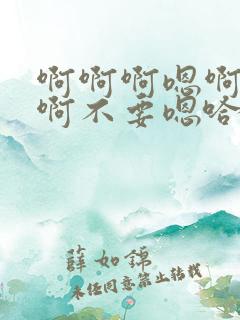 啊啊啊嗯啊
啊不要嗯哈
薛如錦
未经同意禁止转载